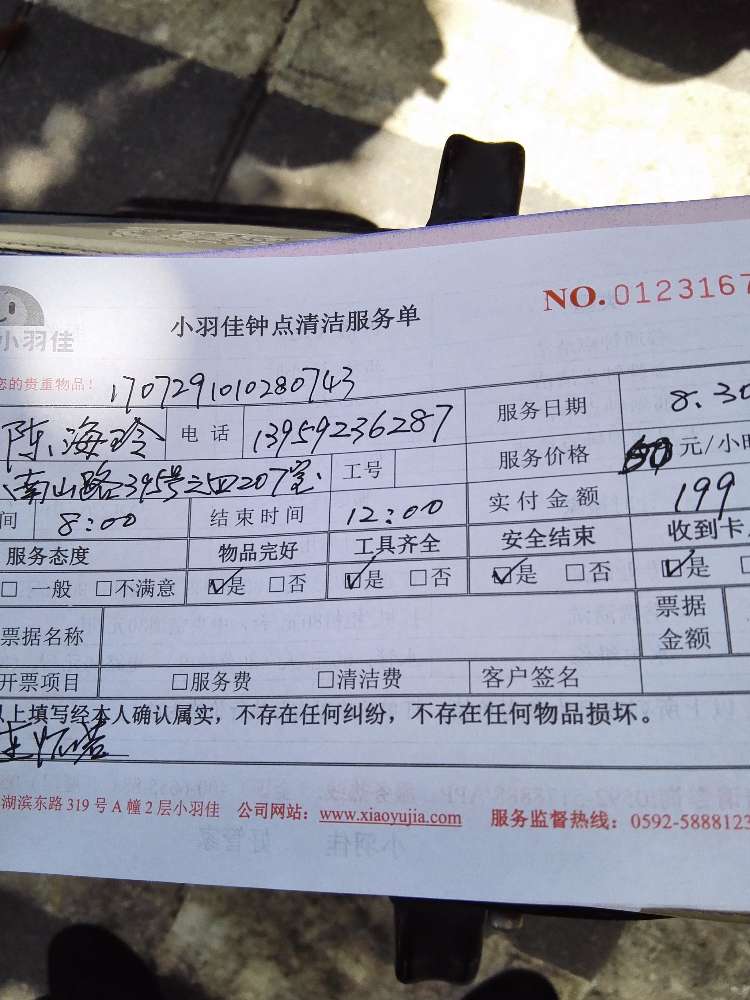 小羽佳
小羽佳钟点清洁服务单
NO.0123167
您的贵重物品！
1707291010280743
陈海玲 电话 13959236287 服务日期 8.30
南山路395号之四207室 工号 服务价格 元/小时
间 8:00 结束时间 12:00 实付金额 199
服务态度 物品完好 工具齐全 安全结束 收到卡
□ 一般 □不满意 ☑是 □否 ☑是 □否 ☑是 □否 ☑是
票据名称 票据金额
开票项目 □服务费 □清洁费 客户签名
以上填写经本人确认属实，不存在任何纠纷，不存在任何物品损坏。
湖滨东路319号A幢2层小羽佳 公司网站：www.xiaoyujia.com 服务监督热线：0592-5888123